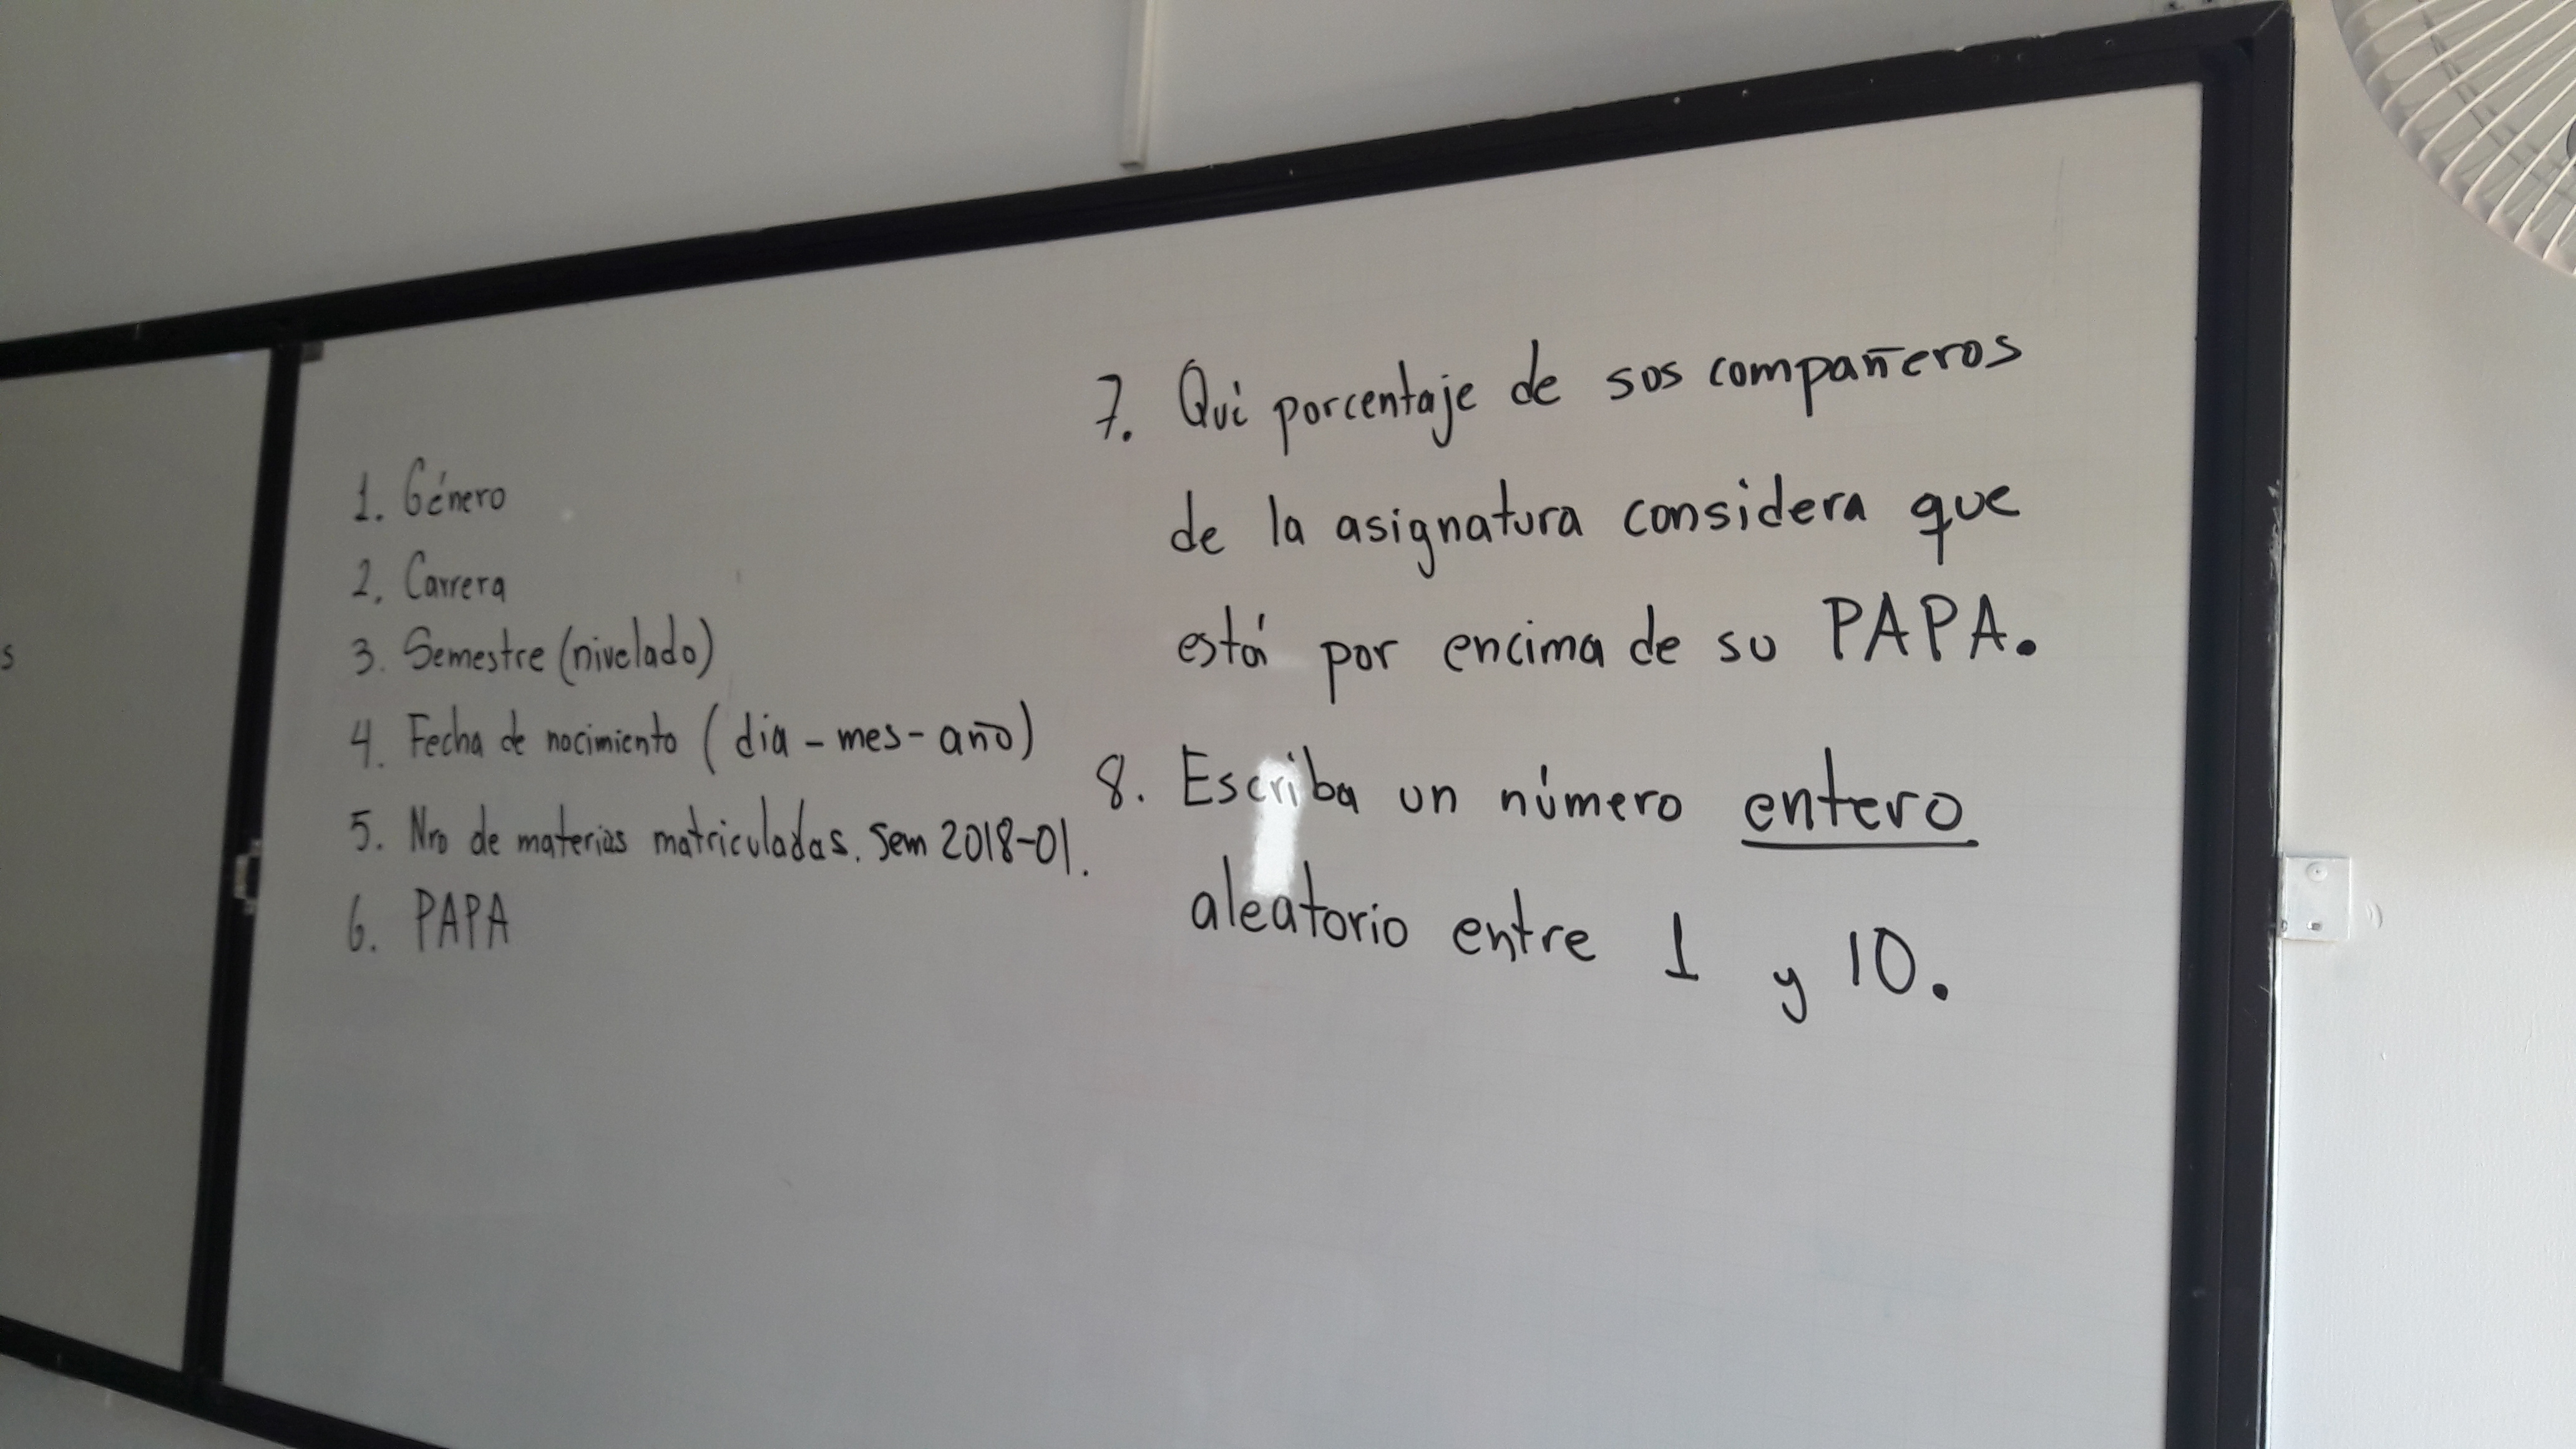 s
1. Género
2. Carrera
3. Semestre (nivelado)
4. Fecha de nacimiento (dia - mes - año)
5. Nro de materias matriculadas. Sem 2018-01.
6. PAPA
7. Qué porcentaje de sus compañeros
de la asignatura considera que
está por encima de su PAPA.
8. Escriba un número entero
aleatorio entre 1 y 10.